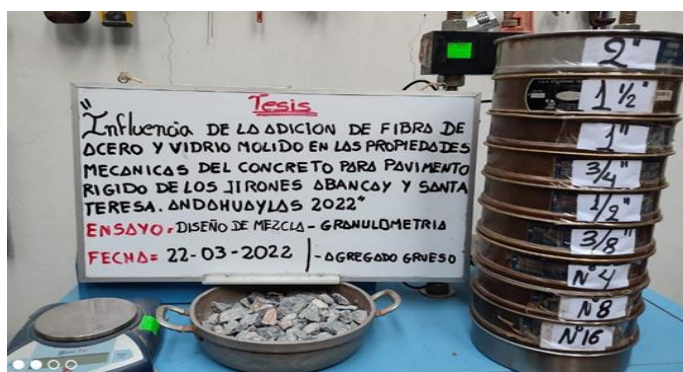 Tesis
"Influencia DE LA ADICION DE FIBRA DE
ACERO Y VIDRIO MOLIDO EN LAS PROPIEDADES
MECANICAS DEL CONCRETO PARA PAVIMENTO
RIGIDO DE LOS JIRONES ABANCAY Y SANTA
TERESA. ANDAHUAYLAS 2022"
ENSAYO: DISEÑO DE MEZCLA - GRANULOMETRIA
FECHA= 22-03-2022 - AGREGADO GRUESO
2"
1 ½"
1"
3/4"
1/2"
3/8"
Nº4
Nº8
Nº16